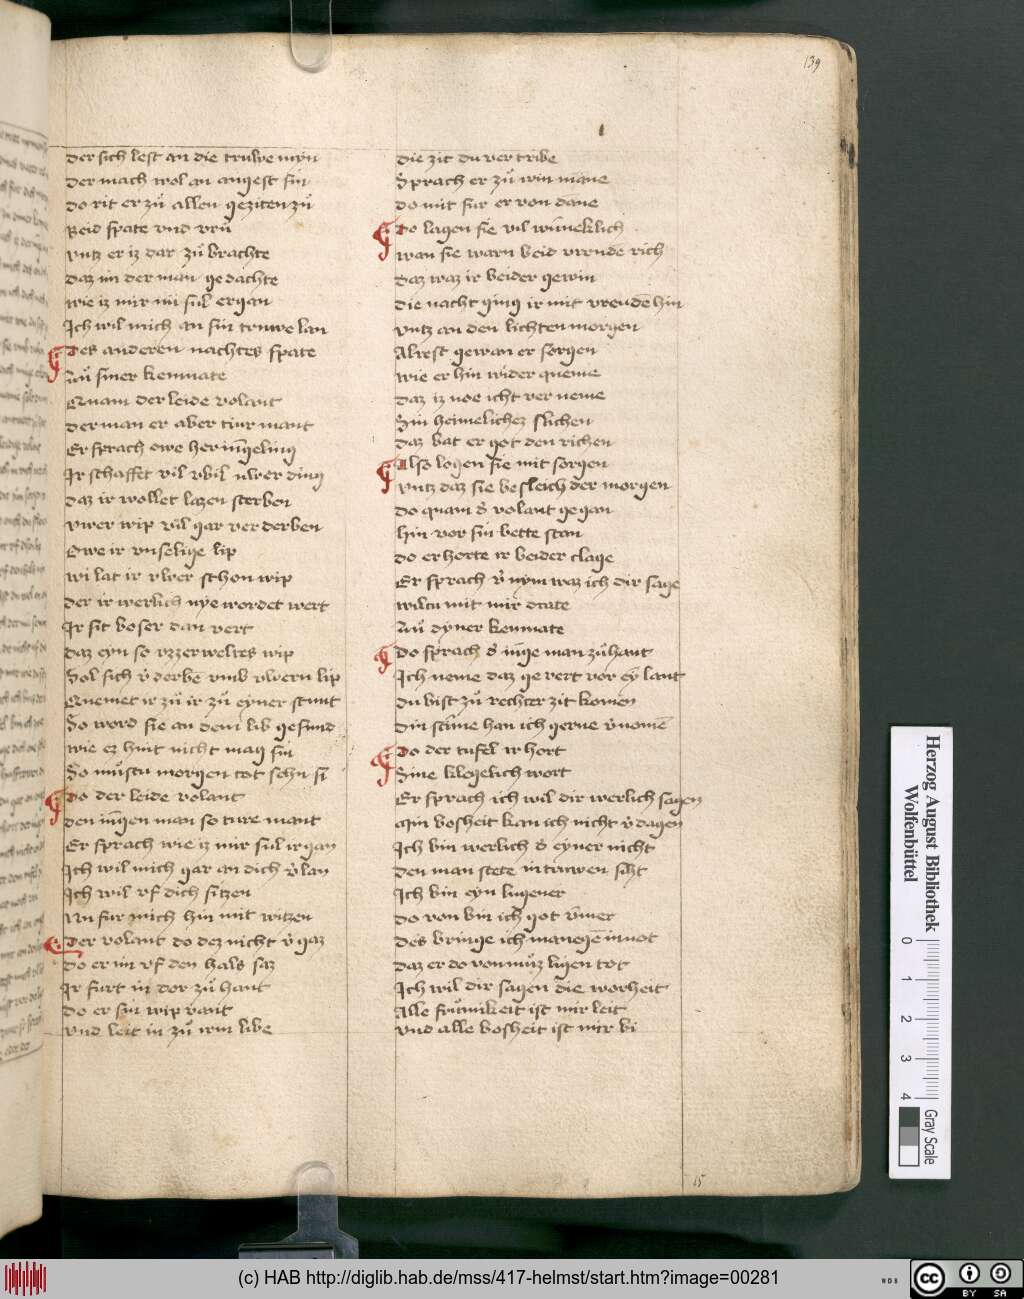 139
der sich lest an die truwe myn
der mach wol an angest sin
do rit er zů allen geziten zů
Beid spate vnd vrů
vntz er iz dar zů brachte
daz im der man gedachte
wie iz mir nu sul ergan
Ich wil mich an sin truwe lan
Des anderen nachtes spate
Zů siner kemnate
Quam der leide volant
der man er aber tiur mant
Er sprach owe her iūgeling
Ir schaffet vil vbil uwer ding
daz ir wollet lazen sterben
vwer wip vil gar verderben
Owe ir vnselige lip
wi lat ir vwer schon wip
der ir werlich nye wordet wert
Ir sit boser dan vert
daz eyn so vzzerweltes wip
Sol sich v̓derbe vmb vwern lip
Quemet ir zů ir zů eyner stunt
So word sie an dem lib gesund
wie ez hint nicht mag sin
So můstu morgen tot sehn si
Do der leide volant
den iūgen man so ture mant
Er sprach wie iz mir sul irgan
Ich wil mich gar an dich v̓lan
Ich wil vf dich sitzen
Nu fur mich hin mit witzen
Der volant do dez nicht v̓gaz
do er im vf den hals saz
Ir furt in dor zů hant
do er sin wip vant
vnd leit in zů irm libe
die zit du vertribe
Sprach er zů win mane
do mit fur er von dane
Do lagen sie vil wūneklich
wan sie warn beid vreude rich
daz waz ir beider gewin
die nacht ging ir mit vreudē hin
vntz an den lichten morgen
Alrest gewan er sorgen
wie er hin wider queme
daz iz noe icht verneme
Sin heimelichez slichen
daz bat er got den richen
Also logen sie mit sorgen
vntz daz sie besleich der morgen
do quam d̓ volant gegan
hin vor sin bette stan
do er horte ir beider clage
Er sprach v̓nym waz ich dir sage
wiltu mit mir drate
Zů dyner kemnate
Do sprach d̓ iūge man zů hant
Ich neme daz gevert vor eȳ lant
du bist zů rechter zit komen
din stime han ich gerne v̓nomē
Do der tufel irhort
Sine klegelich wort
Er sprach ich wil dir werlich sagen
Min bosheit kan ich nicht v̓dagen
Ich bin werlich d̓ eyner nicht
den man stete in truwen siht
Ich bin eyn lugener
do von bin ich got v̓mer
des bringe ich manegē in not
daz er do von můz ligen tot
Ich wil dir sagen die worheit
Alle frůmikeit ist mir leit
vnd alle bosheit ist mir bi
15
Herzog August Bibliothek
Wolfenbüttel
0 1 2 3 4
Gray Scale
(c) HAB http://diglib.hab.de/mss/417-helmst/start.htm?image=00281
WDB
cc BY SA